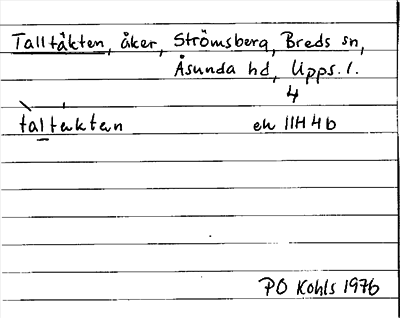 Talltäkten, åker, Strömsberg, Breds sn,
Åsunda hd, Upps. l.
4
taltäktän
ek 11H 4b
PO Kohls 1976